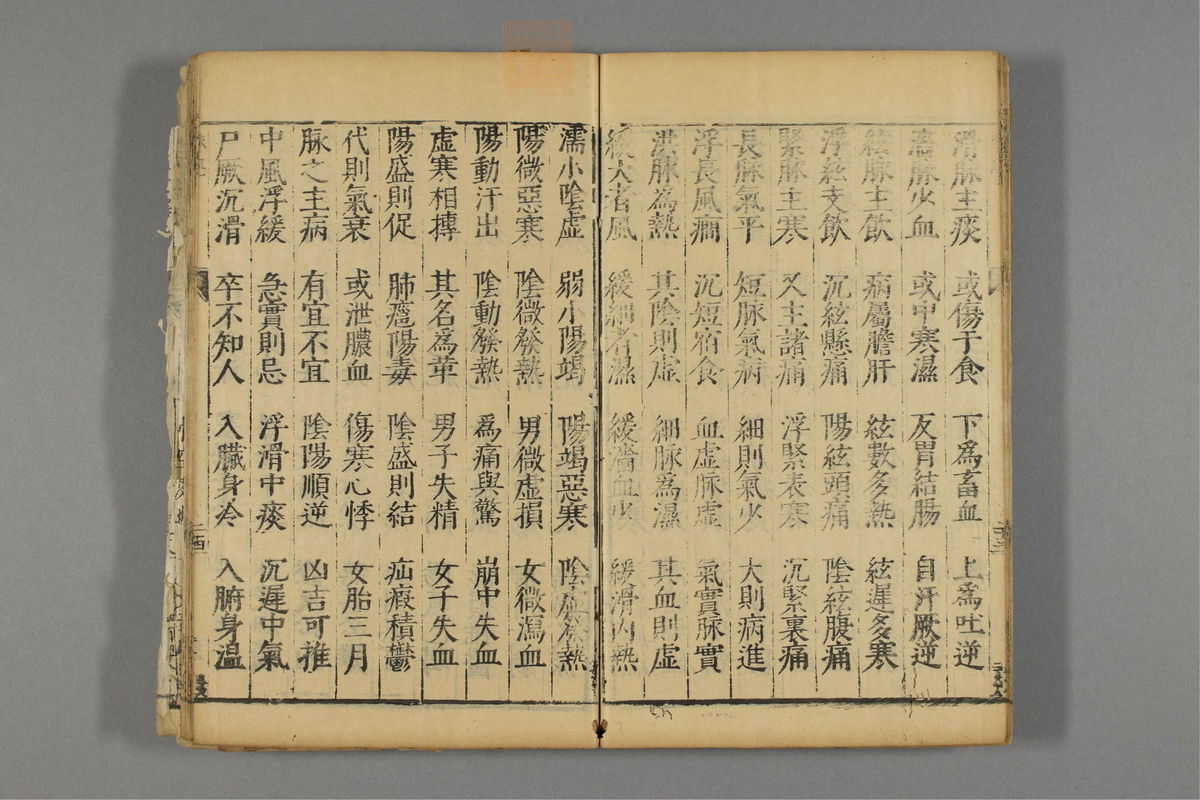 滑脉主痰 或傷于食 下爲畜血 上爲吐逆
濇脉少血 或中寒濕 反胃結腸 自汗厥逆
絃脉主飲 病屬膽肝 絃數多熱 絃遲多寒
浮絃支飲 沉絃懸痛 陽絃頭痛 陰絃腹痛
緊脉主寒 又主諸痛 浮緊表寒 沉緊裏痛
長脉氣平 短脉氣病 細則氣少 大則病進
浮長風癇 沉短宿食 血虛脉虛 氣實脉實
洪脉爲熱 其陰則虛 細脉爲濕 其血則虛
緩大者風 緩細者濕 緩濇血少 緩滑內熱
濡小陰虛 弱小陽竭 陽竭惡寒 陰虛發熱
陽微惡寒 陰微發熱 男微虛損 女微瀉血
陽動汗出 陰動發熱 爲痛與驚 崩中失血
虛寒相搏 其名爲革 男子失精 女子失血
陽盛則促 肺癰陽毒 陰盛則結 疝瘕積鬱
代則氣衰 或泄膿血 傷寒心悸 女胎三月
脉之主病 有宜不宜 陰陽順逆 凶吉可推
中風浮緩 急實則忌 浮滑中痰 沉遲中氣
尸厥沉滑 卒不知人 入臟身冷 入腑身溫